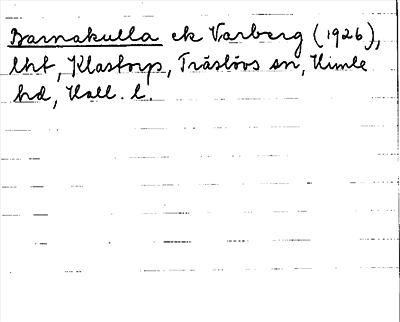 Barnakulla ek Varberg (1926),
lht, Klastorps, Träslövs sn, Himle
hd, Hall. l.